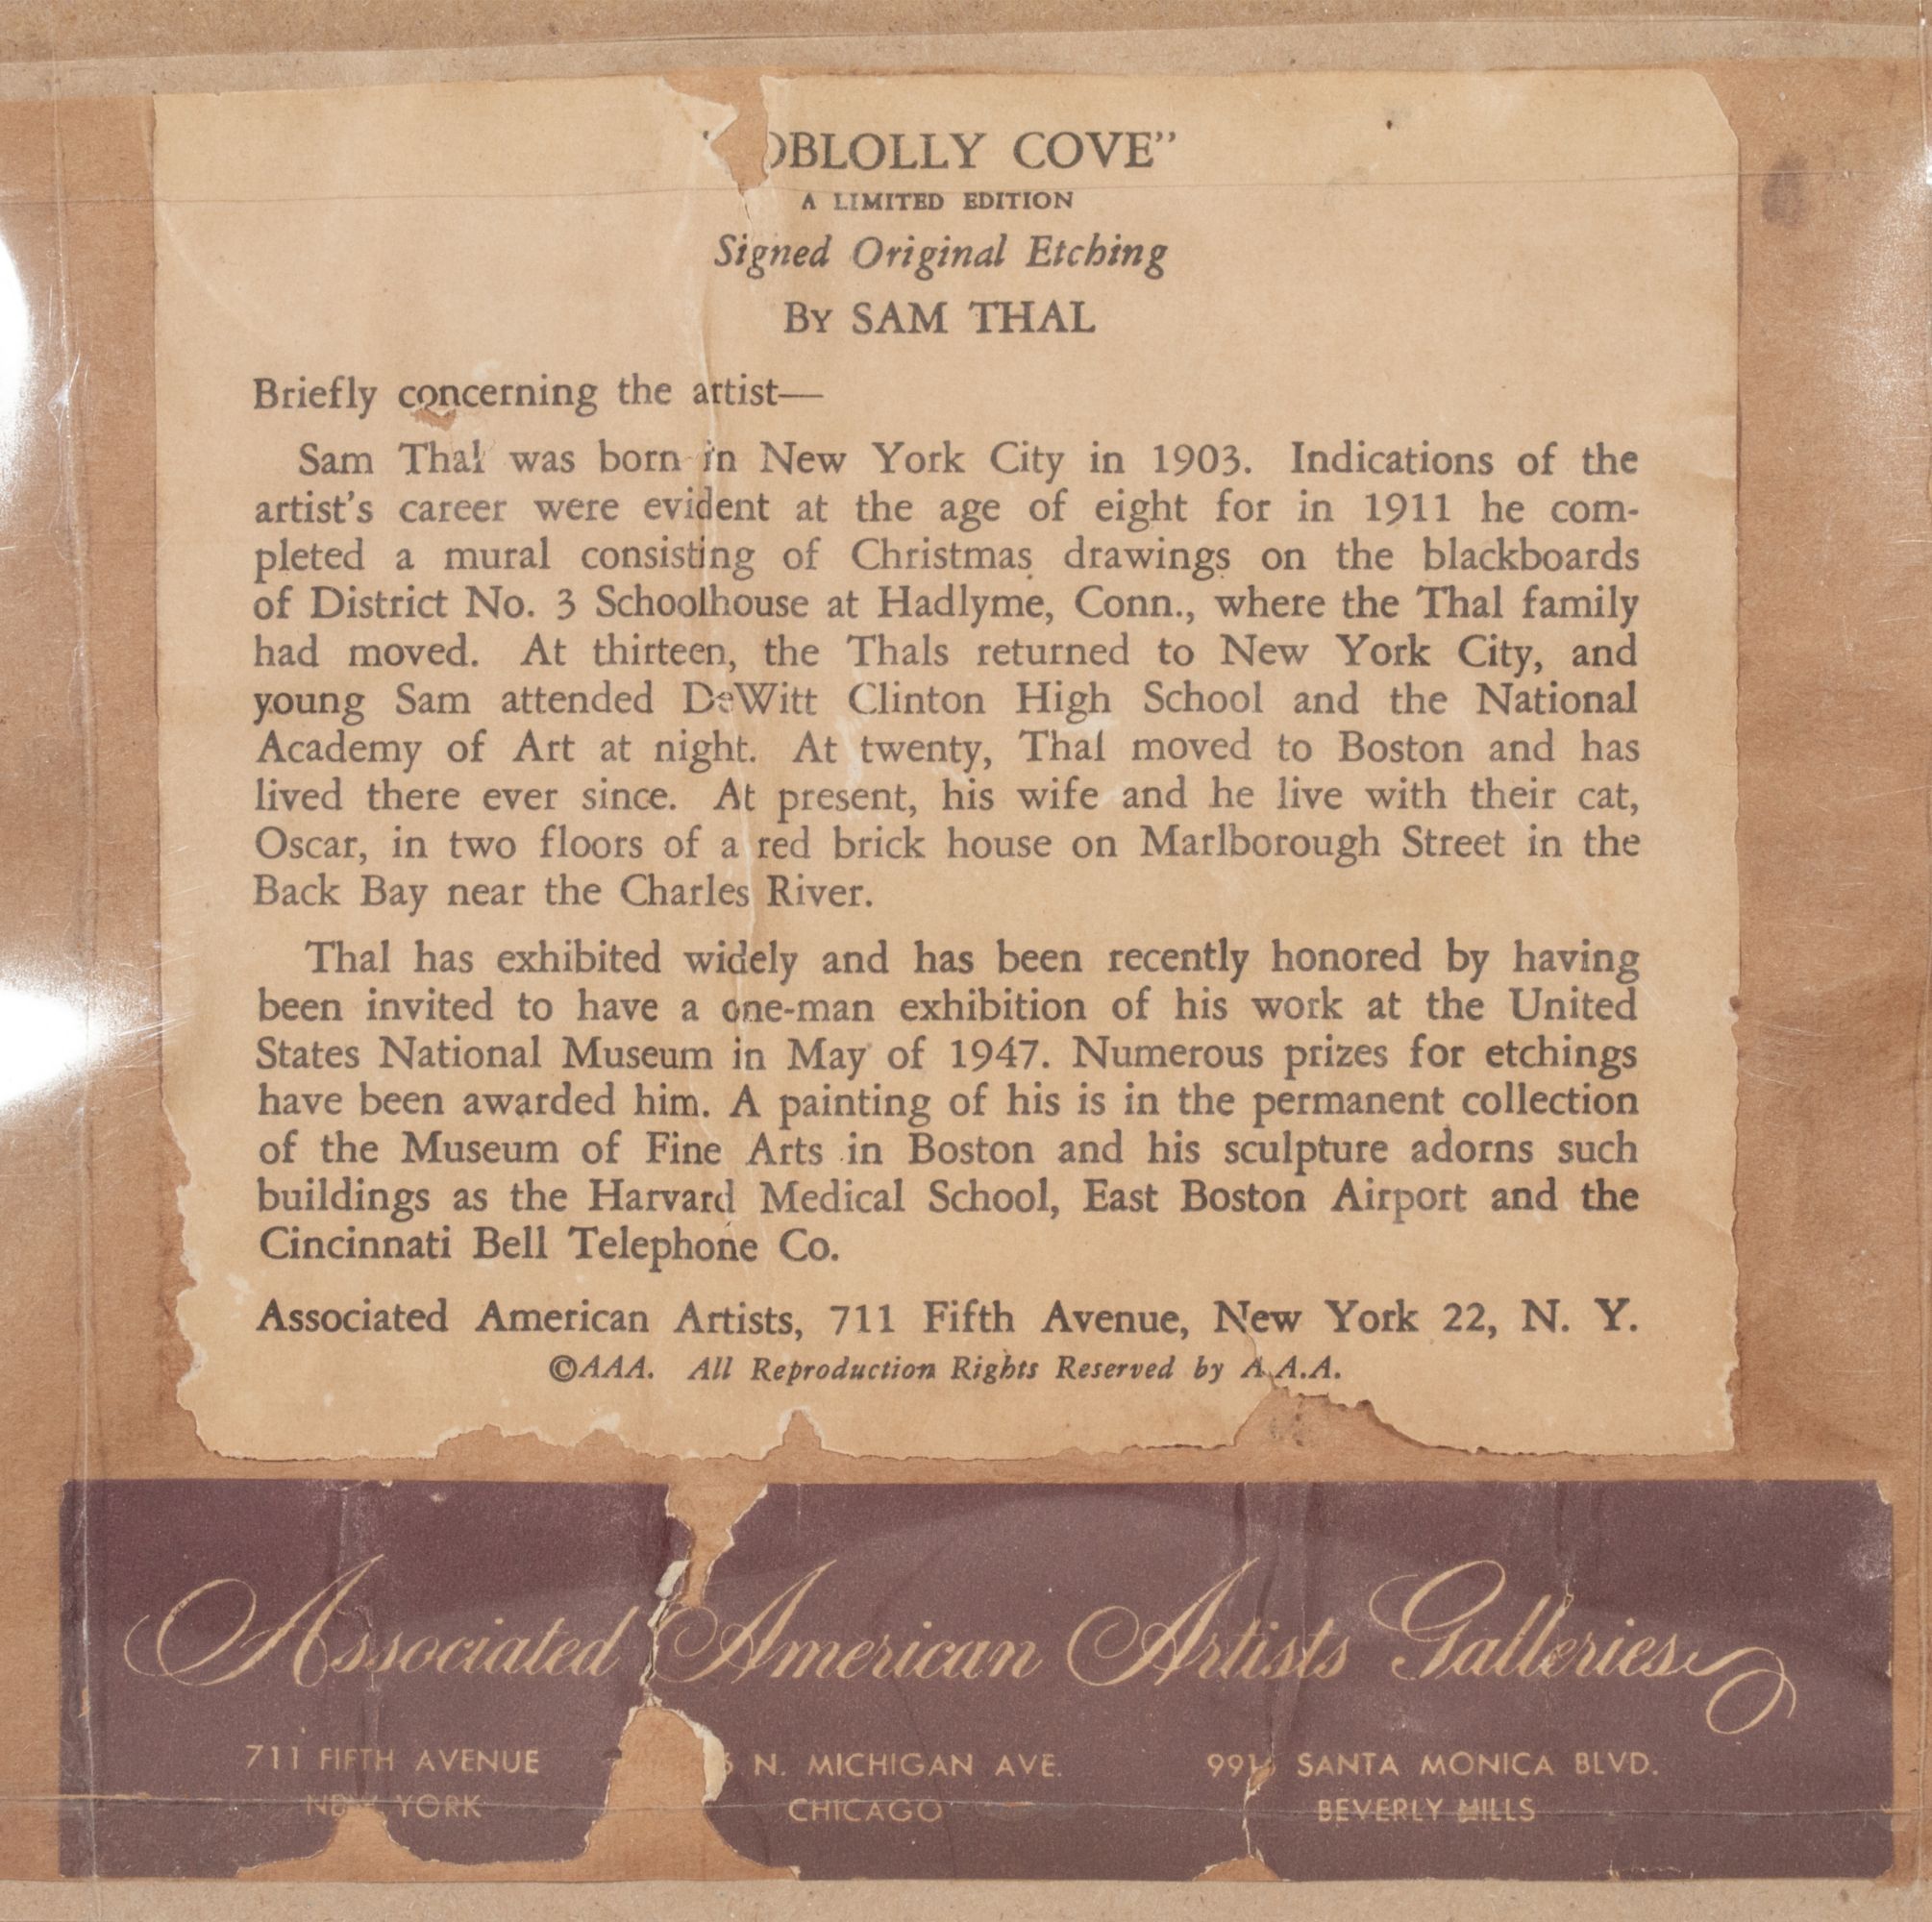 "OBLOLLY COVE"
A LIMITED EDITION
Signed Original Etching
By SAM THAL
Briefly concerning the artist—
Sam Thal was born in New York City in 1903. Indications of the
artist's career were evident at the age of eight for in 1911 he com-
pleted a mural consisting of Christmas drawings on the blackboards
of District No. 3 Schoolhouse at Hadlyme, Conn., where the Thal family
had moved. At thirteen, the Thals returned to New York City, and
young Sam attended DeWitt Clinton High School and the National
Academy of Art at night. At twenty, Thal moved to Boston and has
lived there ever since. At present, his wife and he live with their cat,
Oscar, in two floors of a red brick house on Marlborough Street in the
Back Bay near the Charles River.
Thal has exhibited widely and has been recently honored by having
been invited to have a one-man exhibition of his work at the United
States National Museum in May of 1947. Numerous prizes for etchings
have been awarded him. A painting of his is in the permanent collection
of the Museum of Fine Arts in Boston and his sculpture adorns such
buildings as the Harvard Medical School, East Boston Airport and the
Cincinnati Bell Telephone Co.
Associated American Artists, 711 Fifth Avenue, New York 22, N. Y.
©AAA. All Reproduction Rights Reserved by A.A.A.
Associated American Artists Galleries
711 FIFTH AVENUE N. MICHIGAN AVE. SANTA MONICA BLVD.
NEW YORK CHICAGO BEVERLY HILLS